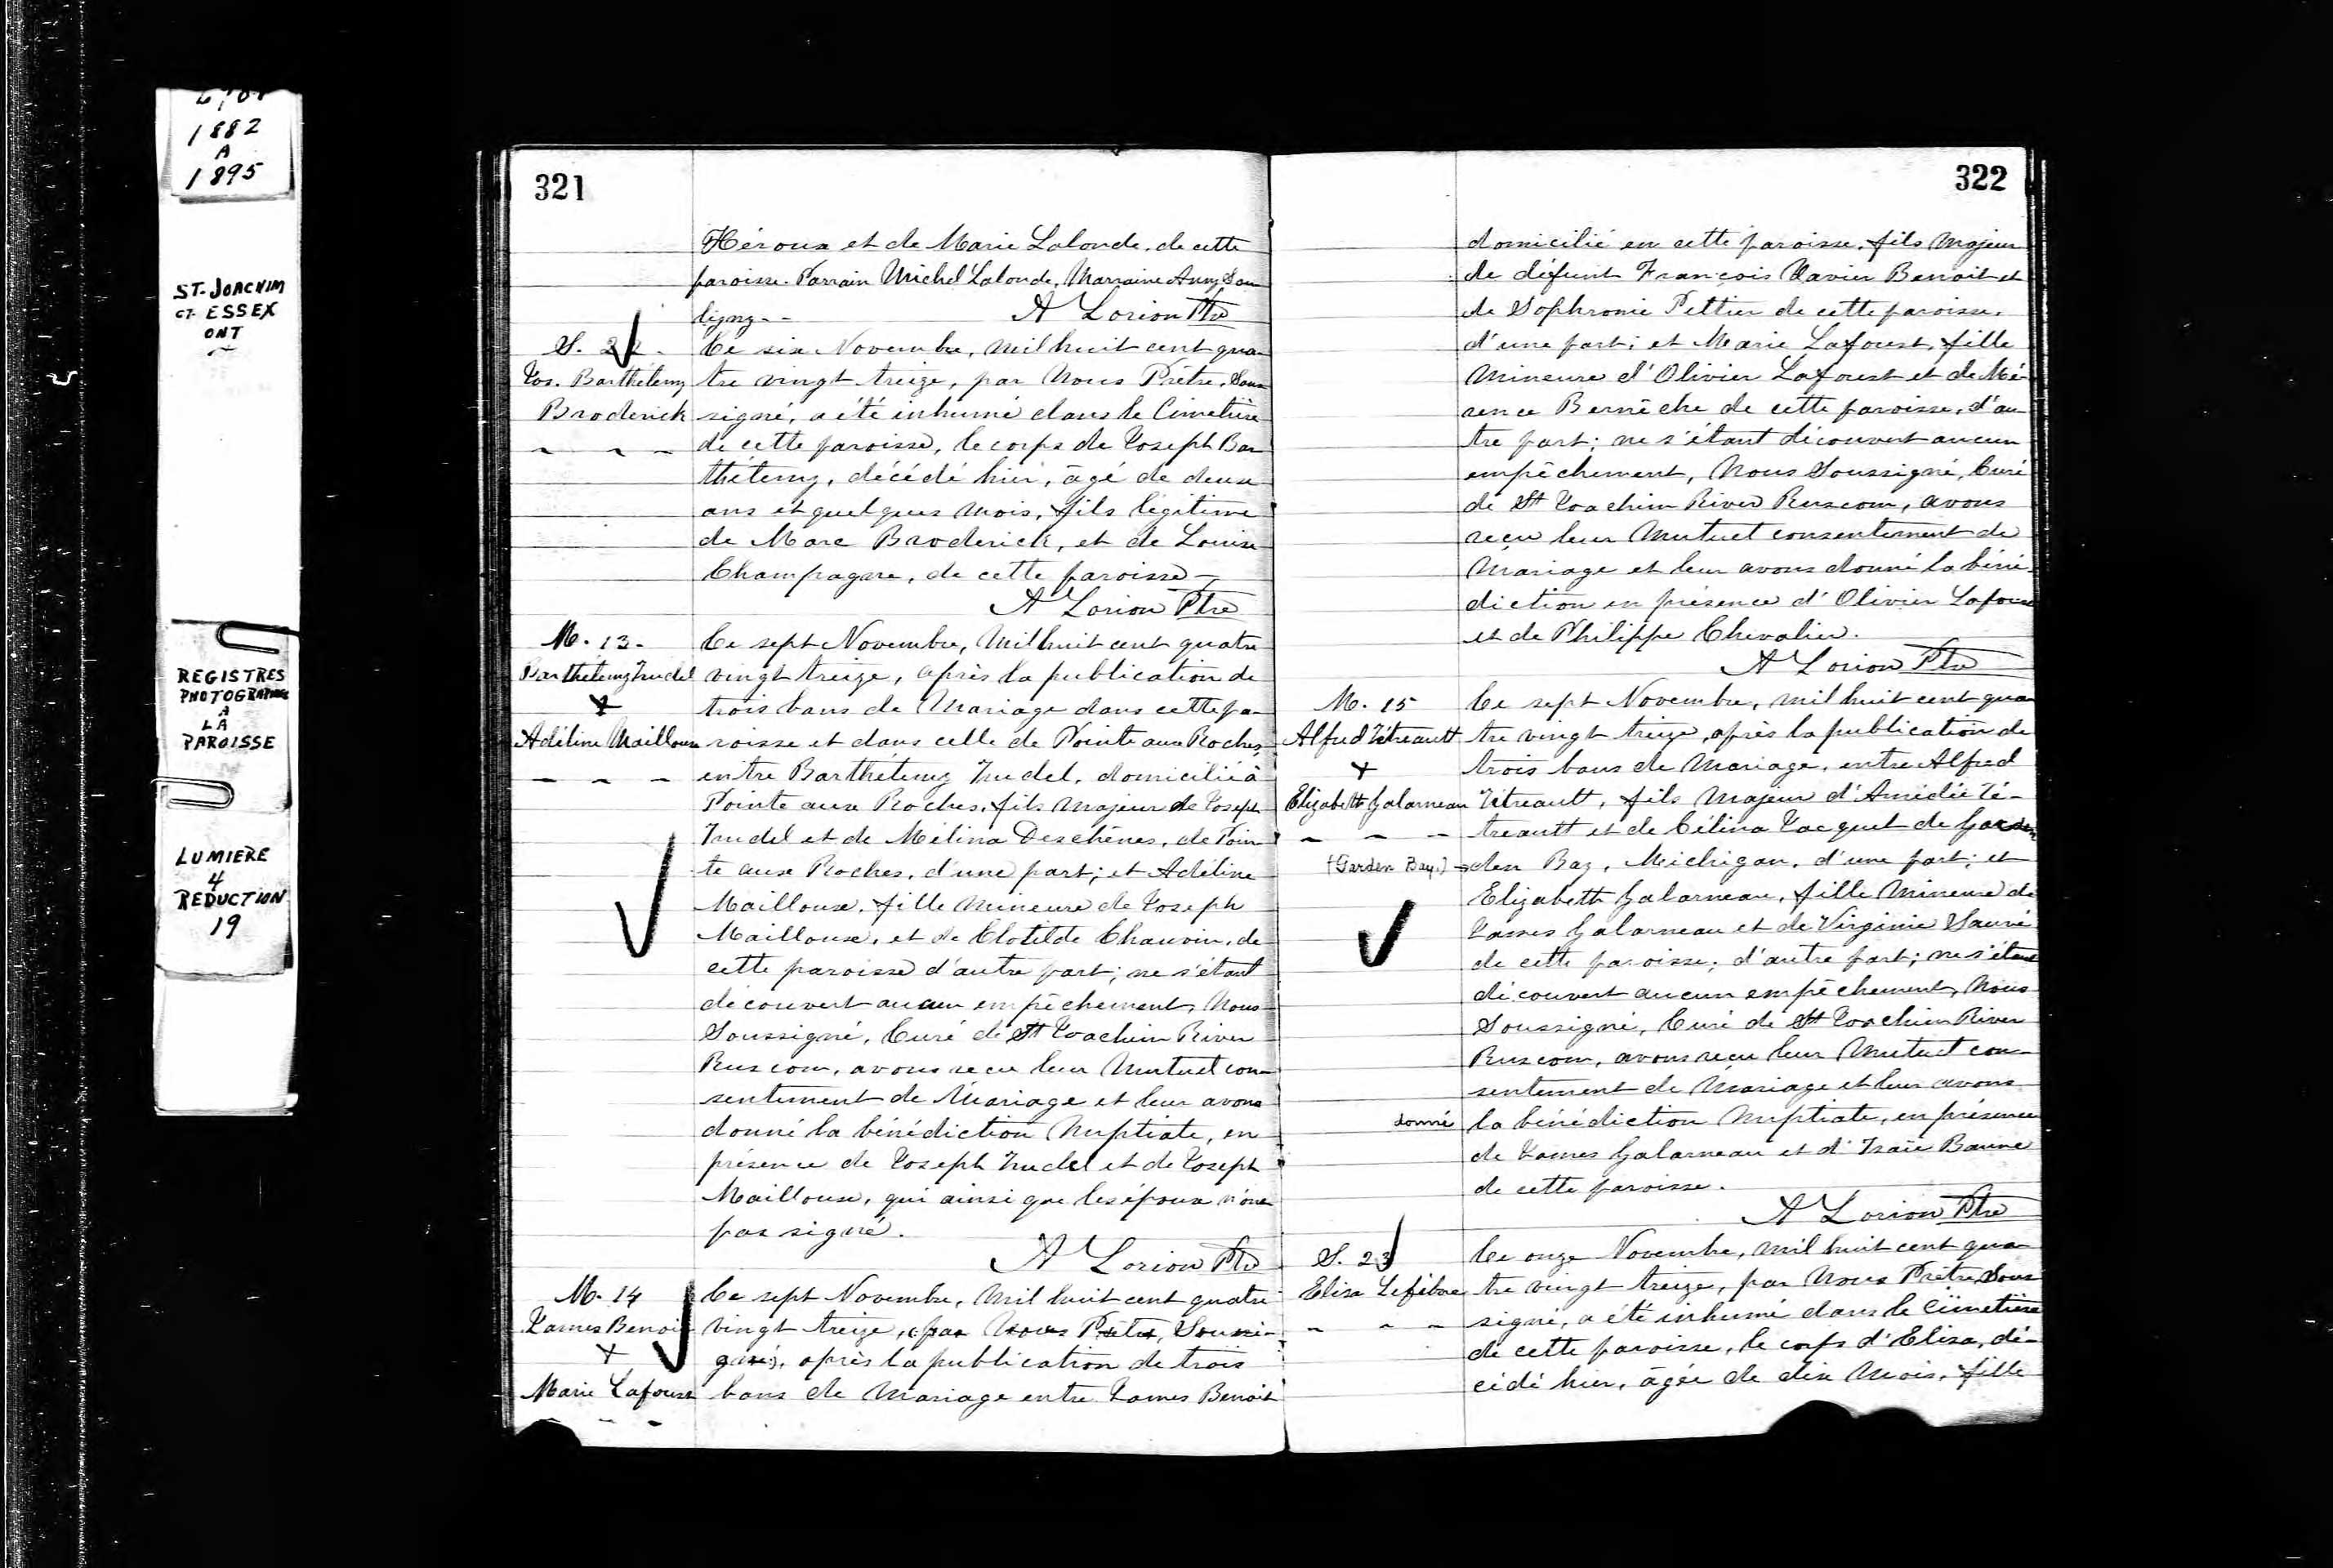 1882
A
1895
ST. JOACHIM
CT. ESSEX
ONT
REGISTRES
PHOTOGRAPHIÉS
A
LA
PAROISSE
LUMIERE
4
REDUCTION
19
321
Héroux et de Marie Lalonde, de cette
paroisse. Parrain Michel Lalonde, Marraine Anny Sou
ligny - -
A Lorion Ptre
S. 22 -
Jos. Barthélemy
Broderick
Ce six Novembre, mil huit cent qua-
tre vingt treize, par Nous Prêtre, Sous
signé, a été inhumé dans le Cimetière
de cette paroisse, le corps de Joseph Bar
thélemy, décédé hier, âgé de deux
ans et quelques mois, fils légitime
de Marc Broderick, et de Louise
Champagne, de cette paroisse -
A Lorion Ptre
M. 13 -
Barthélemy Trudel
+
Adéline Mailloux
Ce sept Novembre, Mil huit cent quatre
vingt treize, après la publication de
trois bans de Mariage dans cette pa-
roisse et dans celle de Pointe aux Roches
entre Barthélemy Trudel, domicilié à
Pointe aux Roches, fils Majeur de Joseph
Trudel et de Mélina Deschênes, de Poin
te aux Roches, d'une part; et Adéline
Mailloux, fille Mineure de Joseph
Mailloux, et de Clotilde Chauvin, de
cette paroisse d'autre part; ne s'étant
découvert aucun empêchement, Nous
Soussigné, Curé de St Joachim River
Ruscom, avons reçu leur Mutuel con-
sentement de Mariage et leur avons
donné la bénédiction Nuptiale, en
présence de Joseph Trudel et de Joseph
Mailloux, qui ainsi que les époux n'ont
pas signé.
A Lorion Ptre
M. 14
James Benoit
+
Marie Lafourst
Ce sept Novembre, Mil huit cent quatre
vingt treize, par Nous Prêtre, Soussi-
gné, après la publication de trois
bans de Mariage entre James Benoit
322
domicilié en cette paroisse, fils Majeur
de défunt François Xavier Benoit et
de Sophronie Peltier de cette paroisse,
d'une part; et Marie Lafourst, fille
Mineure d'Olivier Lafourst et de Mé-
rence Bernèche de cette paroisse, d'au
tre part; ne s'étant découvert aucun
empêchement, Nous Soussigné, Curé
de St Joachim River Ruscom, avons
reçu leur Mutuel consentement de
Mariage et leur avons donné la béné-
diction en présence d'Olivier Lafourst
et de Philippe Chevalier.
A Lorion Ptre
M. 15
Alfred Tétreault
+
Elizabeth Galarneau
(Garden Bay.)
Ce sept Novembre, mil huit cent qua
tre vingt treize, après la publication de
trois bans de Mariage, entre Alfred
Tétreault, fils Majeur d'Amédée Té-
treault et de Célina Jacquet de Gar
den Bay, Michigan, d'une part; et
Elizabeth Galarneau, fille Mineure de
James Galarneau et de Virginie Sauvé
de cette paroisse; d'autre part; ne s'étant
découvert aucun empêchement, Nous
Soussigné, Curé de St Joachim River
Ruscom, avons reçu leur Mutuel con-
sentement de Mariage et leur avons
donné la bénédiction Nuptiale, en présence
de James Galarneau et d'Isaïe Baune
de cette paroisse.
A Lorion Ptre
S. 23
Elisa Lefebvre
Ce onze Novembre, mil huit cent qua-
tre vingt treize, par Nous Prêtre, Sous
signé, a été inhumé dans le Cimetière
de cette paroisse, le corps d'Elisa, dé-
cédé hier, âgée de dix Mois, fille